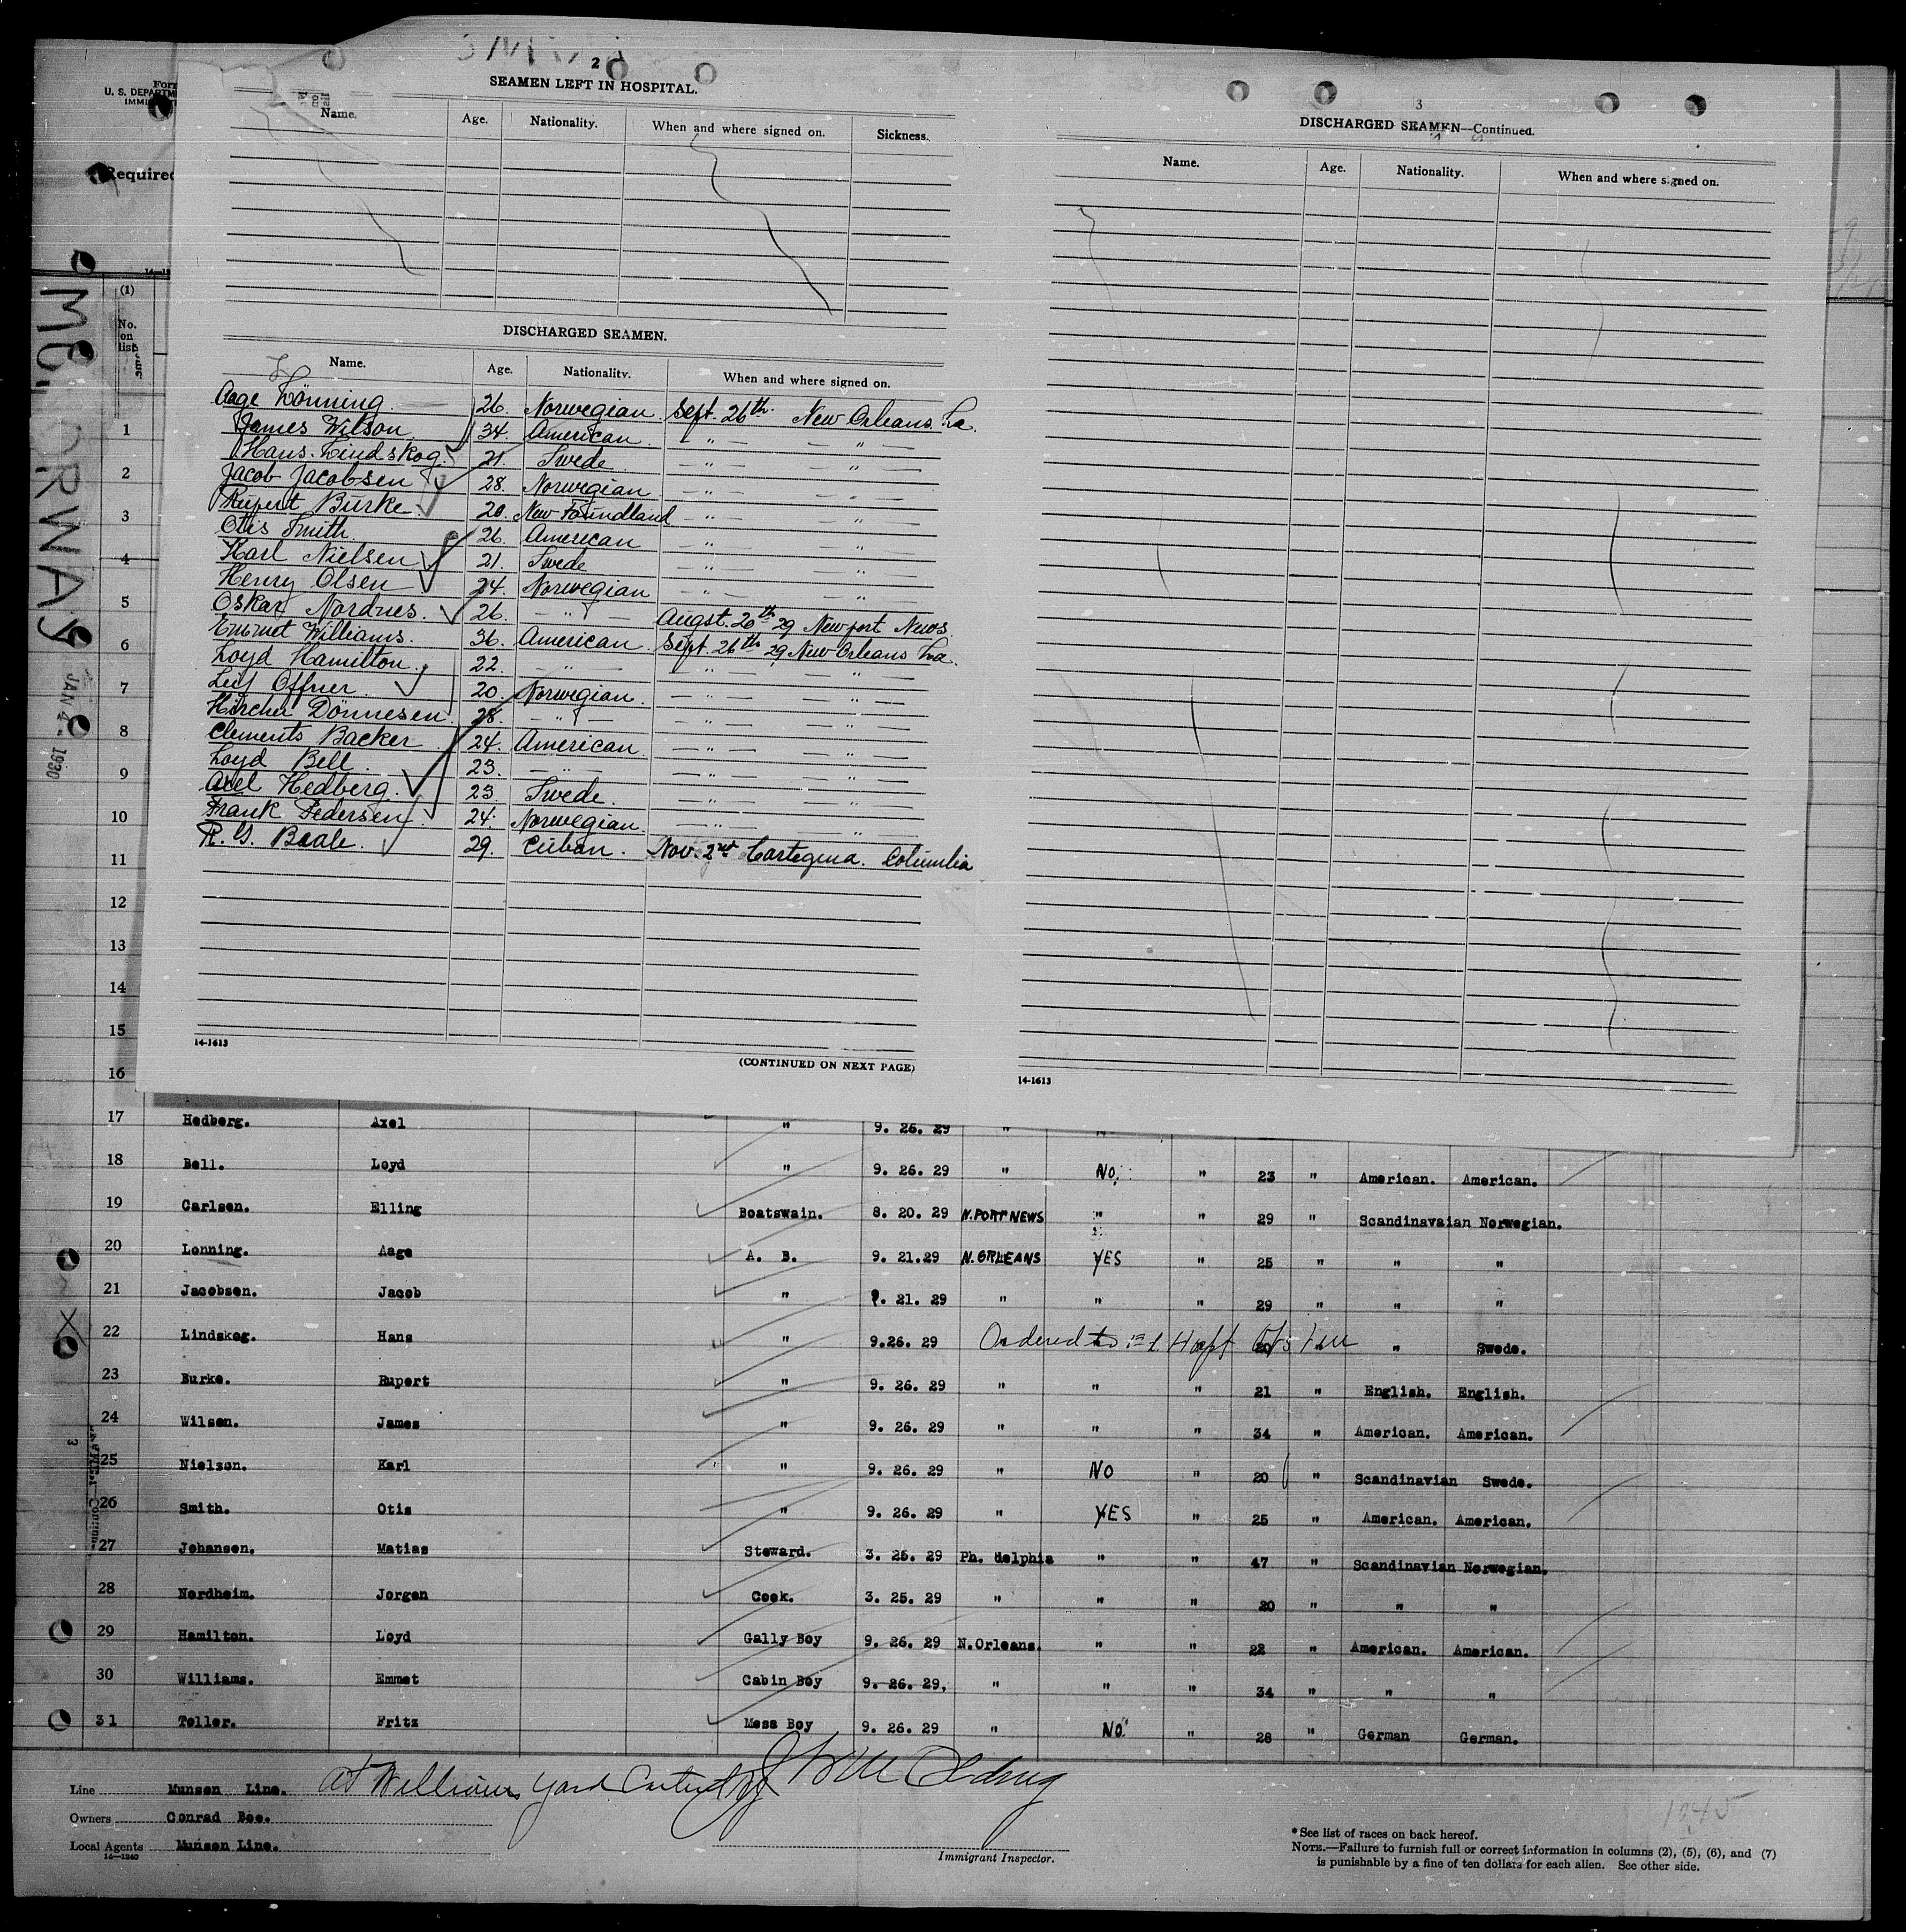 2
SEAMEN LEFT IN HOSPITAL.
Name. Age. Nationality. When and where signed on. Sickness.
DISCHARGED SEAMEN.
Name. Age. Nationality. When and where signed on.
Aage Lönning 26. Norwegian. Sept. 26th. New Orleans. La.
James Wilson. 34. American. " "
Hans. Lindskog. 21. Swede " "
Jacob Jacobsen 28. Norwegian " "
Rupert Burke. 20. New Foundland " "
Otis Smith. 26. American " "
Karl Nielsen 21. Swede " "
Henry Olsen 24. Norwegian " "
Oskar Nordnes. 26. " Augst. 20th 29 Newport News.
Emmet Williams. 36. American. Sept. 26th 29, New Orleans La.
Loyd Hamilton. 22. " " "
Leif Offner. 20. Norwegian. " "
Hircher Dönnesen. 28. " " "
Clements Backer 24. American. " "
Loyd Bell. 23. " " "
Axel Hedberg. 23 Swede. " "
Frank Pedersen. 24. Norwegian. " "
R. G. Beale. 29. Cuban. Nov. 2nd Cartegena. Columbia
14-1613
(CONTINUED ON NEXT PAGE)
3
DISCHARGED SEAMEN—Continued.
Name. Age. Nationality. When and where signed on.
14-1613
U. S. DEPARTM
Required
(1)
No. on list
ORWAY
JAN 1930
1
2
3
4
5
6
7
8
9
10
11
12
13
14
15
16
17 Hedberg. Axel " 9. 26. 29 "
18 Bell. Loyd " 9. 26. 29 " No. " 23 " American. American.
19 Carlsen. Elling Boatswain. 8. 20. 29 N.PORT NEWS " " 29 " Scandinavaian Norwegian.
20 Lonning. Aage A. B. 9. 21.29 N.ORLEANS YES " 25 " " "
21 Jacobsen. Jacob " 9. 21. 29 " " " 29 " " "
22 Lindskog. Hans " 9.26. 29 Ordered to " Swede.
23 Burke. Rupert " 9. 26. 29 " " " 21 " English. English.
24 Wilson. James " 9. 26. 29 " " " 34 " American. American.
25 Nielson. Karl " 9. 26. 29 " NO " 20 " Scandinavian Swede.
26 Smith. Otis " 9. 26. 29 " YES " 25 " American. American.
27 Johansen. Matias Steward. 3. 25. 29 Ph. delphia " " 47 " Scandinavian Norwegian.
28 Nordheim. Jorgen Cook. 3. 25. 29 " " " 20 " " "
29 Hamilton. Loyd Gally Boy 9. 26. 29 N.Orleans. " " 22 " American. American.
30 Williams. Emmet Cabin Boy 9. 26. 29, " " " 34 " " "
31 Teller. Fritz Mess Boy 9. 26. 29 " NO. " 28 " German German.
Line Munson Line. At Williams Yard
Owners Conrad Boe.
Local Agents Munson Line.
14—1240
Immigrant Inspector.
1245
* See list of races on back hereof.
NOTE.—Failure to furnish full or correct information in columns (2), (5), (6), and (7)
is punishable by a fine of ten dollars for each alien. See other side.